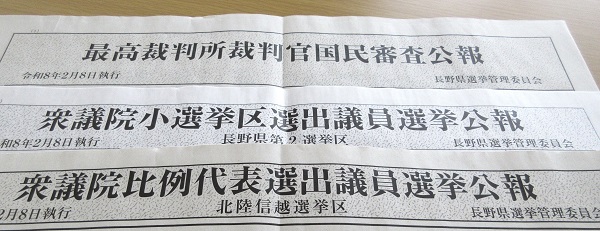 最高裁判所裁判官国民審査公報
令和8年2月8日執行
長野県選挙管理委員会
衆議院小選挙区選出議員選挙公報
和8年2月8日執行
長野県第2選挙区
長野県選挙管理委員会
衆議院比例代表選出議員選挙公報
2月8日執行
北陸信越選挙区
長野県選挙管理委員会